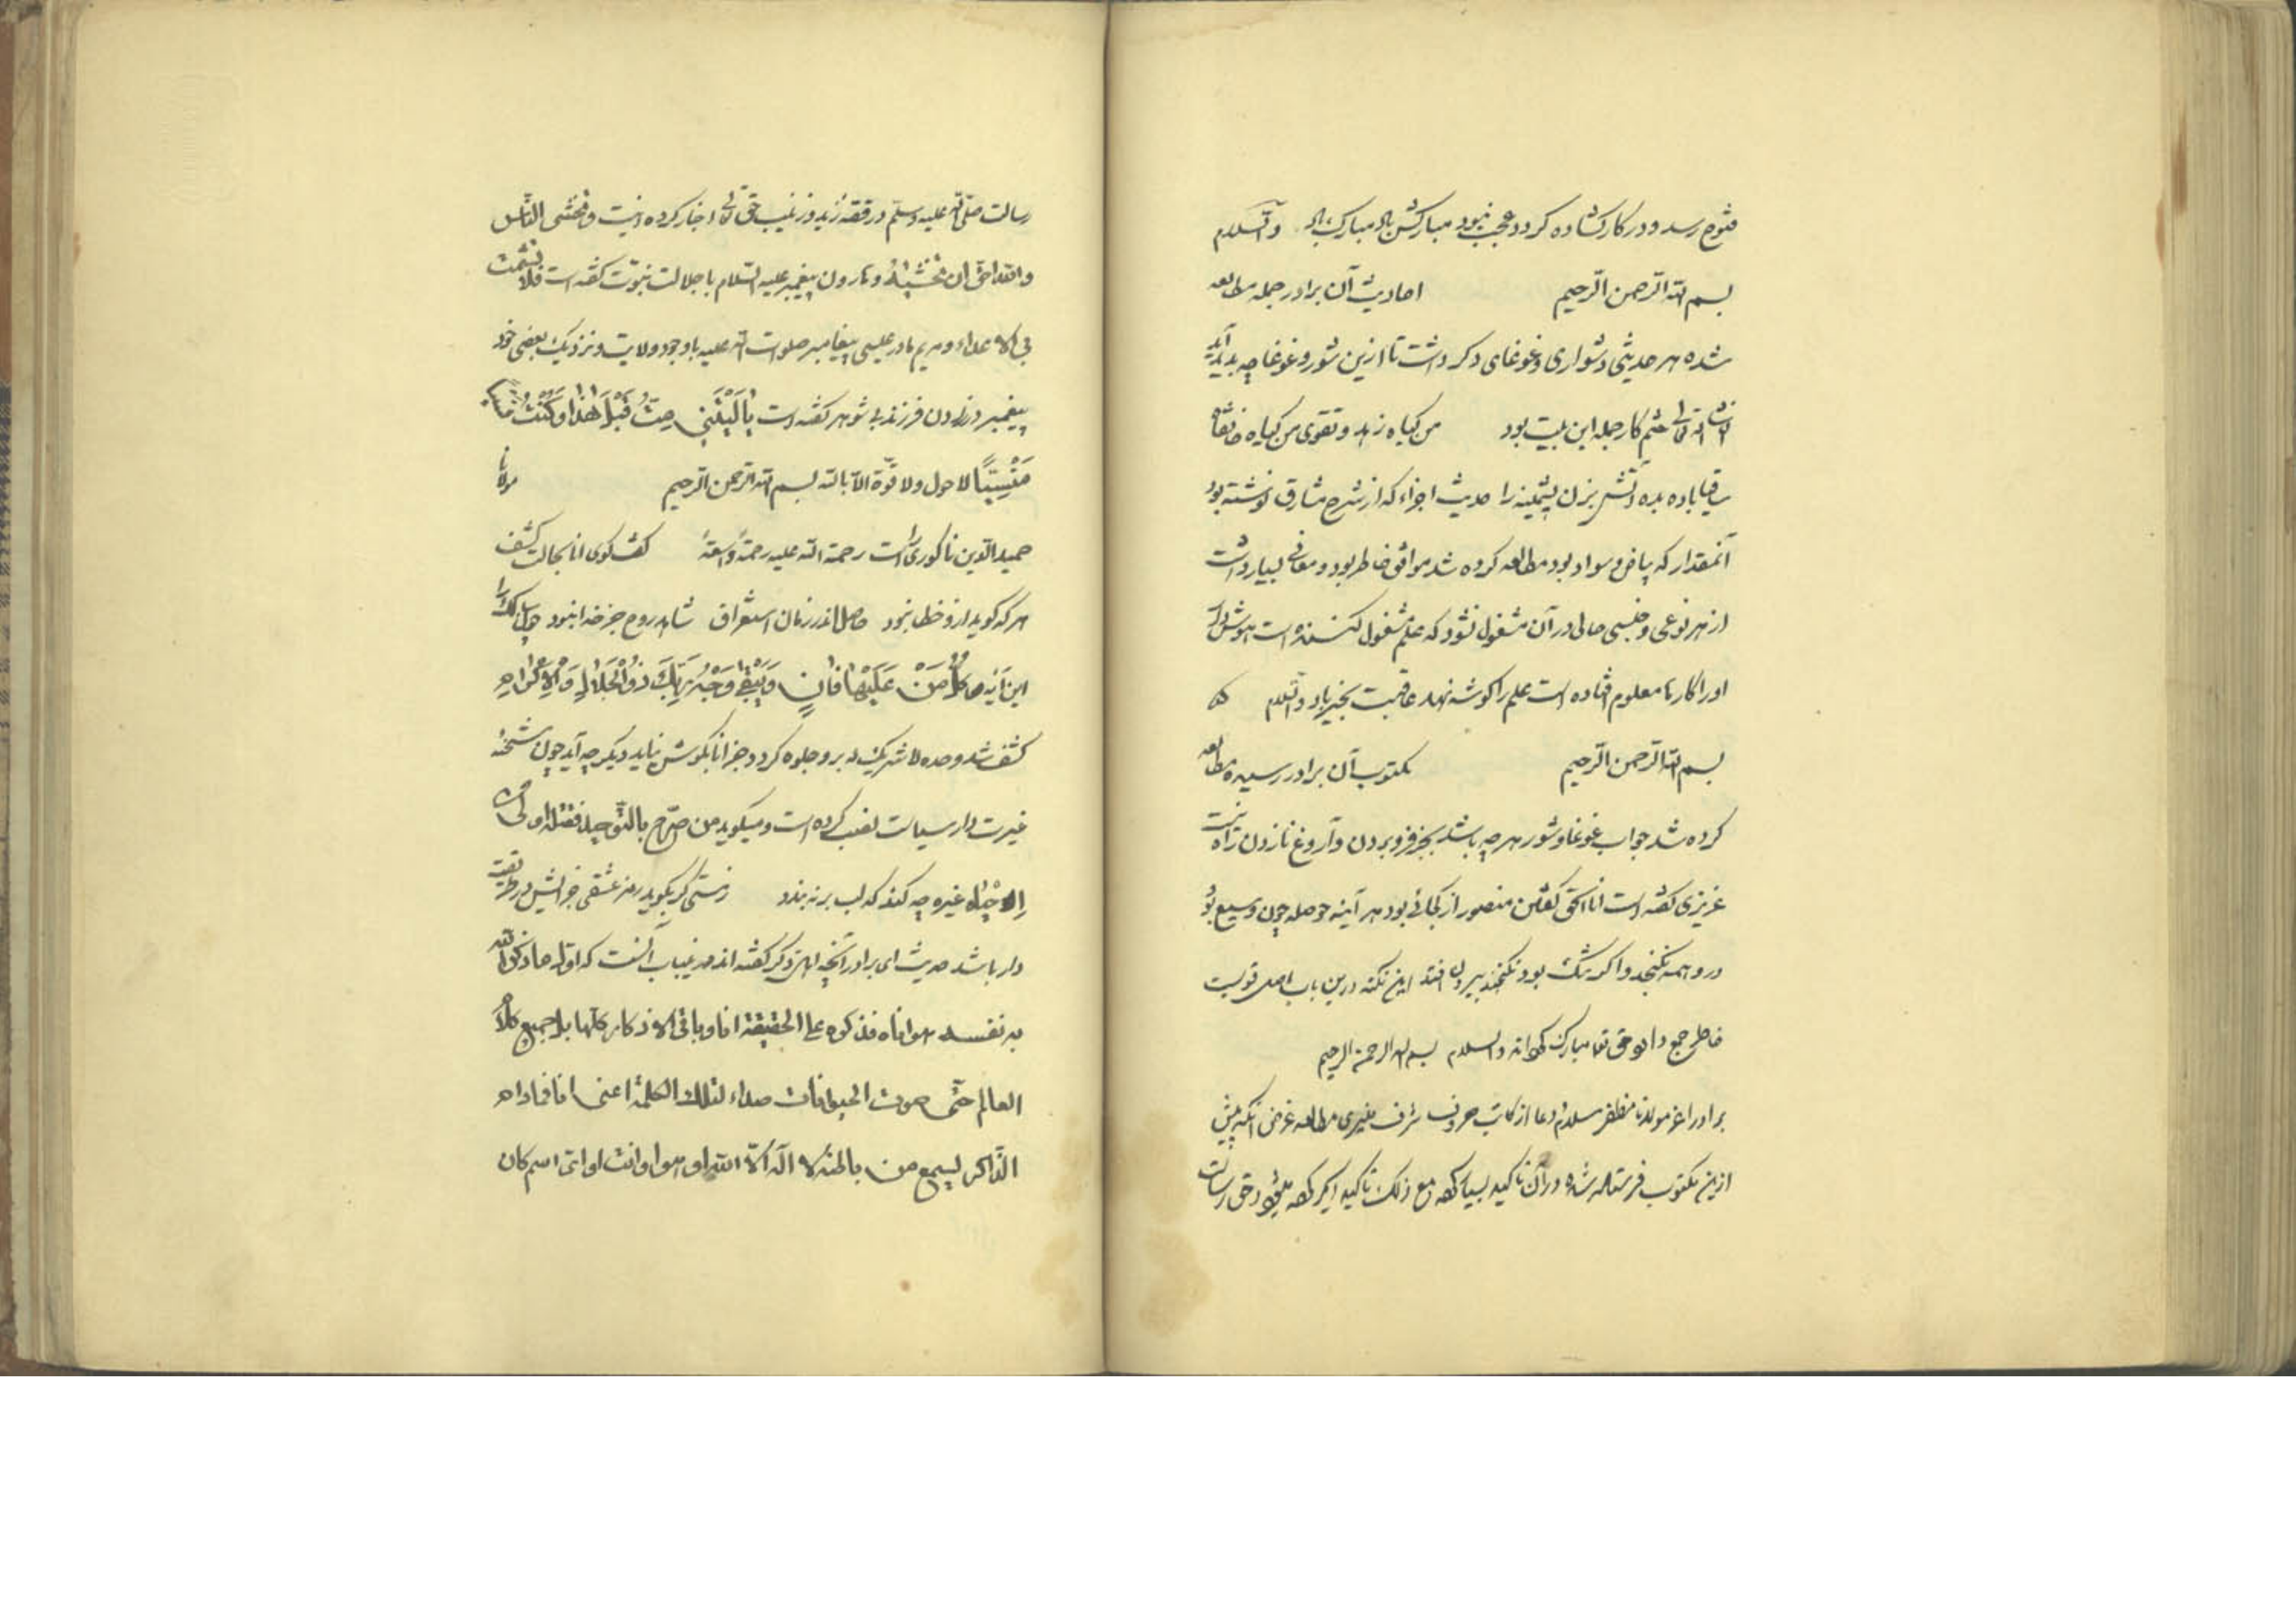 فتوح رسد و در کار کشاده کردد عجب نبود مبارکش باد مبارک باد والسلام
بسم الله الرحمن الرحیم احادیث آن برادر جمله مطالعه
شده هر حدیثی دشواری و غوغای دکر داشت تا ازین شور و غوغا چه پدید آید
انشاء الله تعالی ختم کار جمله این بیت بود من کیاه زهد و تقوی من کیاه خانقاه
ساقیا باده بده و آتش بزن پشمینه را حدیث اجزاء که از شرح مشارق نوشته بود
آنمقدار که بیاض و سواد بود مطالعه کرده شد موافق خاطر بود و معانی بسیار داشت
از هر نوعی و جنسی حالی در آن مشغول نشود که علم مشغول کننده است هوش دار
او را کارها معلوم افتاده است علم را کوشه نهد عاقبت بخیر باد والسلام
بسم الله الرحمن الرحیم مکتوب آن برادر رسید مطالعه
کرده شد جواب غوغا و شور هر چه باشد بجز فرو بردن و آروغ نازدن راه نیست
عزیزی کفته است انا الحق کفتن منصور از بود هر آینه حوصله چون وسیع بود
درو همه بکنجد و اکر تنک بود نکنجد بیرون افتد این نکته درین باب اصل قویست
خاطر جمع دارد حق تعا مبارک والسلام بسم الله الرحمن الرحیم
برادر اعز مولانا مظفر سلام و دعا از کاتب حروف شرف منیری مطالعه غرض آنکه پیش
ازین مکتوب فرستاده شده در آن تاکید بسیار مع ذلک تاکید دیکر حق رسالت
رسالت صلی الله علیه وسلم در قصه زید و زینب حق تعالی اخبار کرده است وتخشی الناس
والله احق ان تخشیه و هارون پیغمبر علیه السلام با جلالت نبوت کفته است فلا تشمت
بی الاعداء و مریم مادر عیسی پیغامبر صلوات الله علیه با وجود ولایت و نزدیک بعضی خود
پیغمبر در زادن فرزند بی شوهر کفته است یَا لَیْتَنِی مِتُّ قَبْلَ هٰذَا وَکُنْتُ نَسْیًا
مَنْسِیًّا لا حول ولا قوة الا بالله بسم الله الرحمن الرحیم مولانا
حمید الدین ناکوری راست رحمة الله علیه رحمةً واسعةً کفت کوی انا بحالت کشف
هر که کوید ازو خطا نبود حاصل اندر زمان استغراق شاهد روح جز خدا نبود چون سالک را
این آیه که کُلُّ مَنْ عَلَیْهَا فَانٍ وَیَبْقٰی وَجْهُ رَبِّکَ ذُو الْجَلَالِ وَالْاِکْرَامِ
کشف شد وحده لا شریک له برو جلوه کرد و جز انا بکوش نیاید دیکر چه آید چون شحنه
غیرت دار سیاست نصب کرده است و میکوید من صرّح بالتوحید فقتله اولی من
اِحْیَاء غیره چه کند که لب برنه بندد زمستی کر بکوید رمز عشقی خرایش در طریقت
دار باشد حدیث ای برادر آنچه اهل ذکر کفته اند
به نفسه هو اناه فذکره علی الحقیقة انا وباقی الاذکار کلها بل جمیع کلام
العالم حتی صوت الحیوانات صداء لتلک الکلمة اعنی انا فمادام
الذاکر یسمع من باطنه لا اله الا الله او هو او انت او ای اسم کان